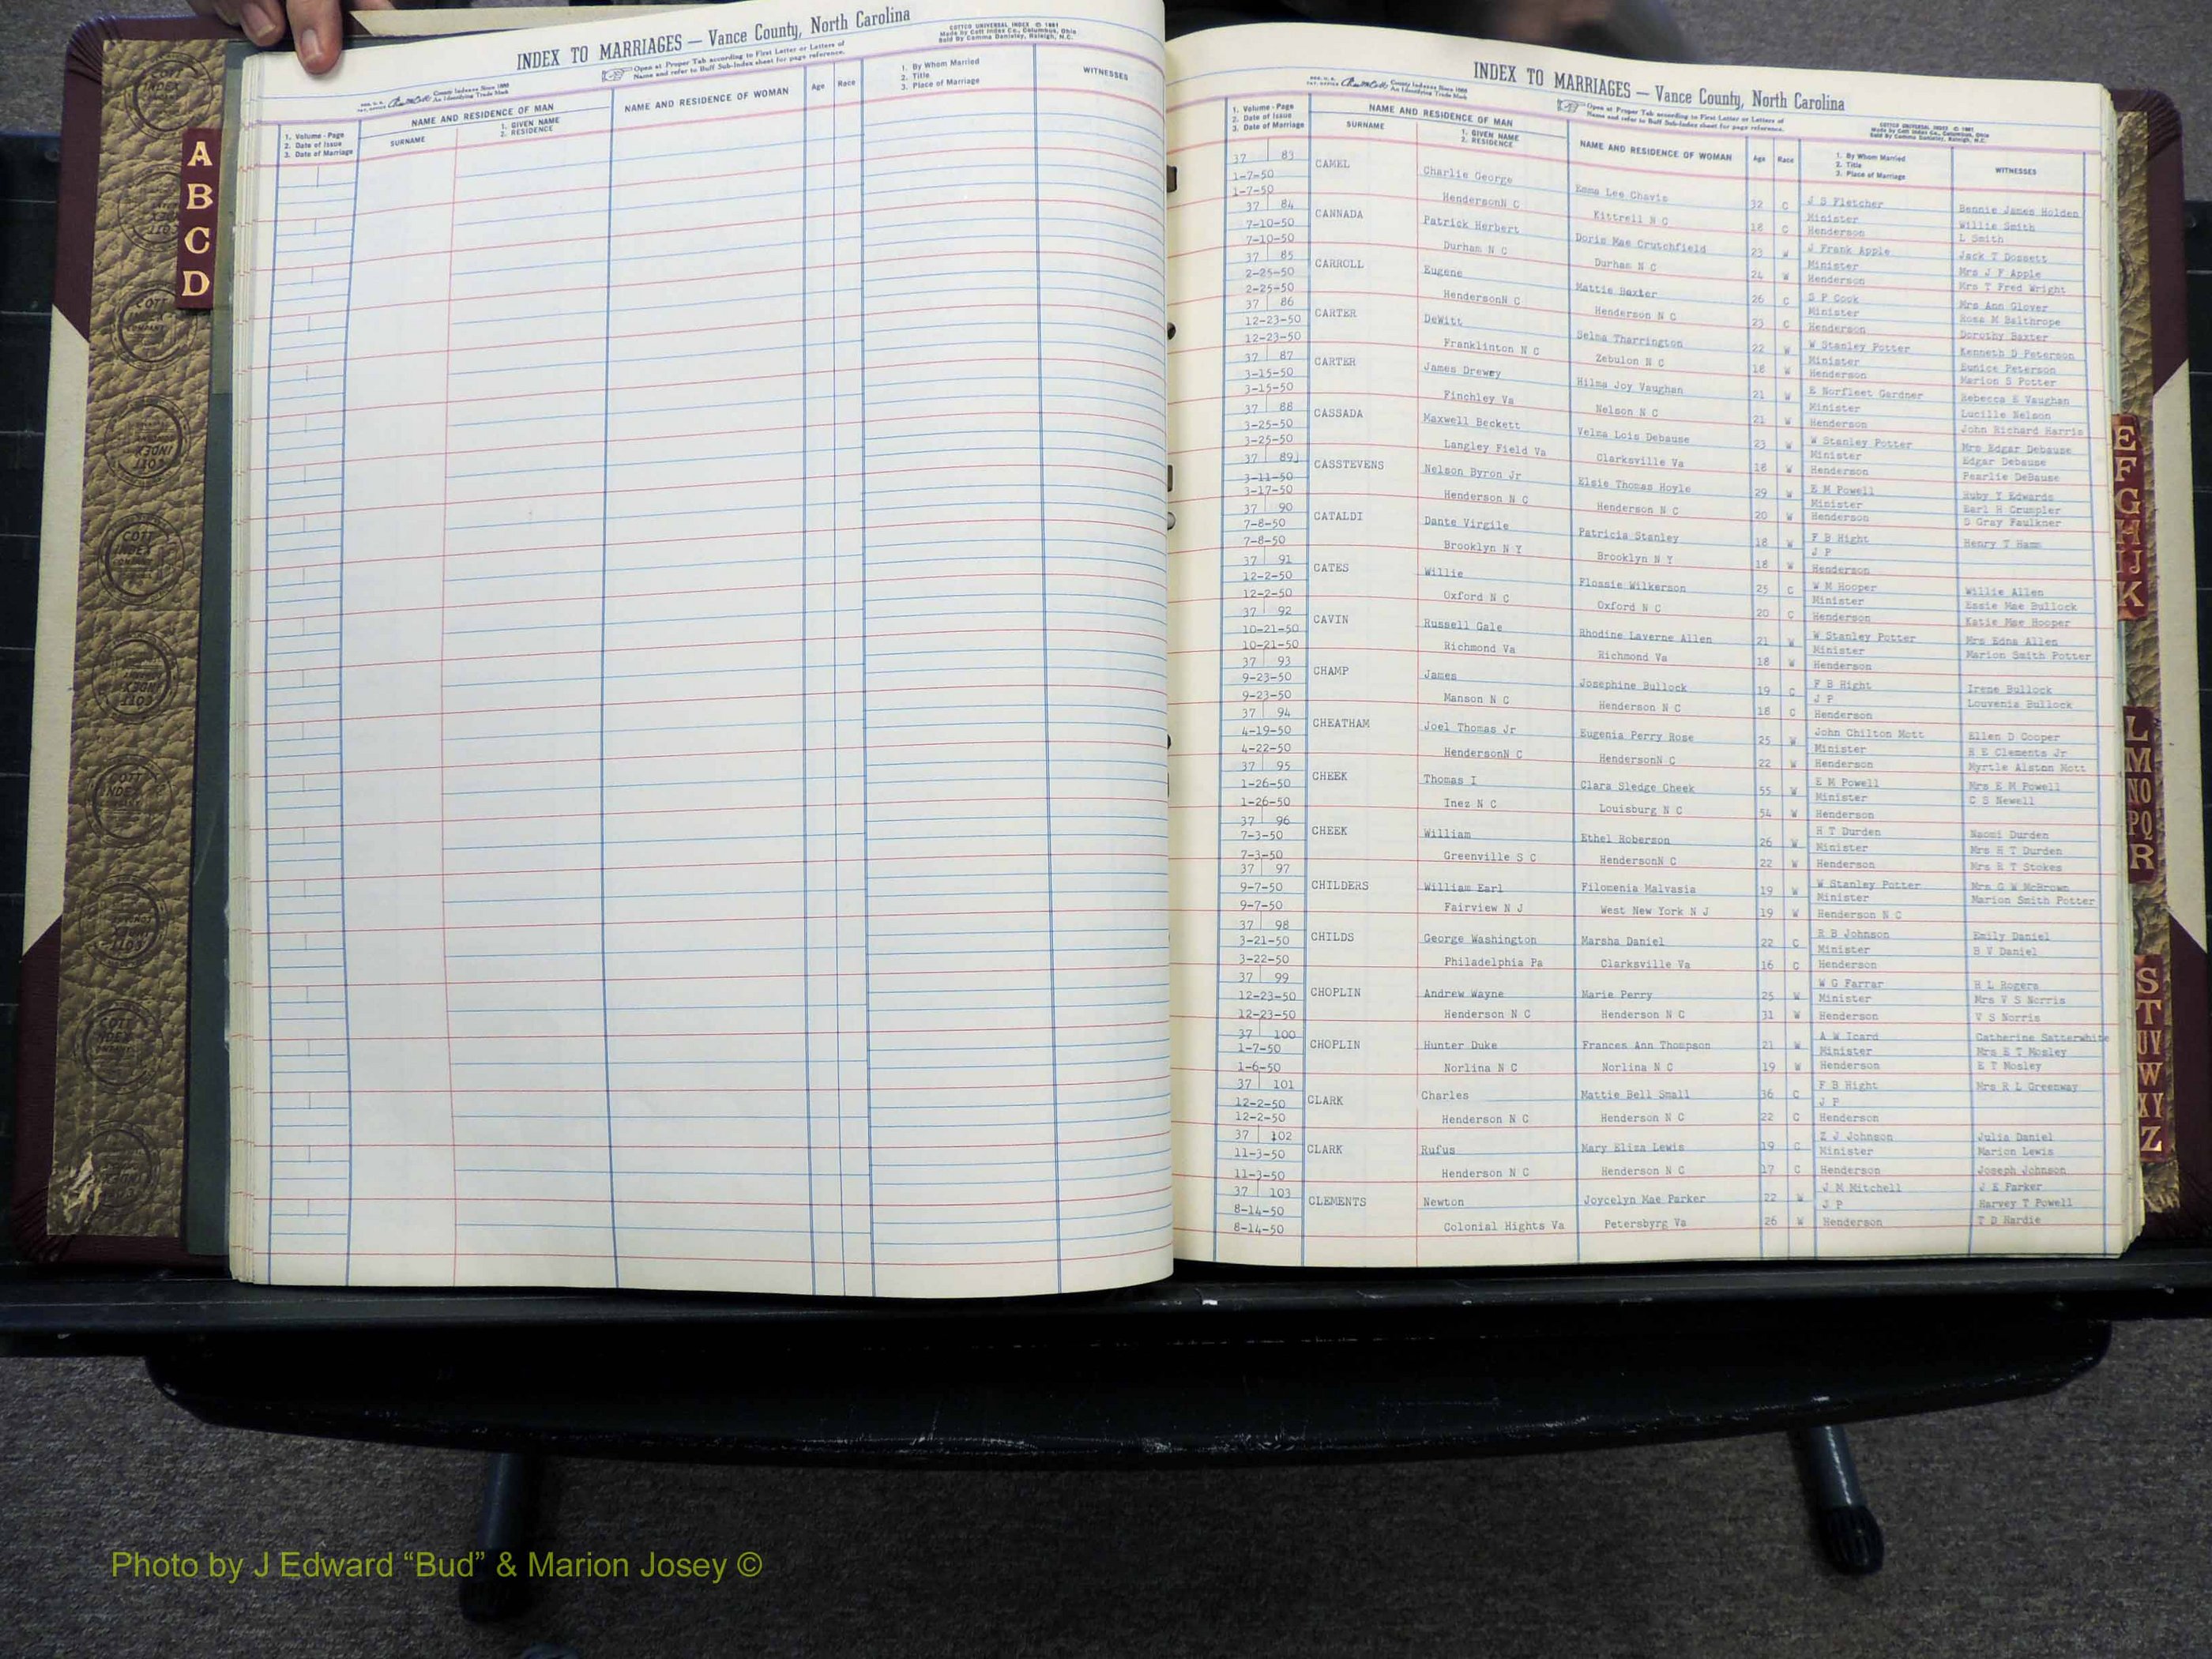 INDEX TO MARRIAGES — Vance County, North Carolina
COTTCO UNIVERSAL INDEX © 1981
Made by Cott Index Co., Columbus, Ohio
Open at Proper Tab according to First Letter or Letters of
Name and refer to Buff Sub-Index sheet for page reference.
County Indexes Since 1888
An Identifying Trade Mark
1. Volume - Page
2. Date of Issue
3. Date of Marriage
NAME AND RESIDENCE OF MAN
SURNAME
1. GIVEN NAME
2. RESIDENCE
NAME AND RESIDENCE OF WOMAN
Age
Race
1. By Whom Married
2. Title
3. Place of Marriage
WITNESSES
A
B
C
D
INDEX TO MARRIAGES — Vance County, North Carolina
County Indexes Since 1888
An Identifying Trade Mark
Open at Proper Tab according to First Letter or Letters of
Name and refer to Buff Sub-Index sheet for page reference.
COTTCO UNIVERSAL INDEX © 1981
Made by Cott Index Co., Columbus, Ohio
1. Volume - Page
2. Date of Issue
3. Date of Marriage
NAME AND RESIDENCE OF MAN
SURNAME
1. GIVEN NAME
2. RESIDENCE
NAME AND RESIDENCE OF WOMAN
Age Race
1. By Whom Married
2. Title
3. Place of Marriage
WITNESSES
37 83 CAMEL Charlie George Emma Lee Chavis 32 C J S Fletcher Bennie James Holden
1-7-50 HendersonN C Kittrell N C 18 C Minister Willie Smith
1-7-50 Henderson L Smith
37 84 CANNADA Patrick Herbert Doris Mae Crutchfield 23 W J Frank Apple Jack T Dossett
7-10-50 Durham N C Durham N C 24 W Minister Mrs J F Apple
7-10-50 Henderson Mrs T Fred Wright
37 85 CARROLL Eugene Mattie Baxter 26 C S P Cook Mrs Ann Glover
2-25-50 HendersonN C Henderson N C 23 C Minister Rosa M Balthrope
2-25-50 Henderson Dorothy Baxter
37 86 CARTER DeWitt Selma Tharrington 22 W W Stanley Potter Kenneth D Peterson
12-23-50 Franklinton N C Zebulon N C 18 W Minister Eunice Peterson
12-23-50 Henderson Marion S Potter
37 87 CARTER James Drewey Hilma Joy Vaughan 21 W E Norfleet Gardner Rebecca E Vaughan
3-15-50 Finchley Va Nelson N C 21 W Minister Lucille Nelson
3-15-50 Henderson John Richard Harris
37 88 CASSADA Maxwell Beckett Velma Lois Debause 23 W W Stanley Potter Mrs Edgar Debause
3-25-50 Langley Field Va Clarksville Va 18 W Minister Edgar Debause
3-25-50 Henderson Pearlie DeBause
37 89 CASSTEVENS Nelson Byron Jr Elsie Thomas Hoyle 29 W E M Powell Ruby Y Edwards
3-11-50 Henderson N C Henderson N C 20 W Minister Earl H Crumpler
3-17-50 Henderson D Gray Faulkner
37 90 CATALDI Dante Virgile Patricia Stanley 18 W F B Hight Henry T Hamm
7-8-50 Brooklyn N Y Brooklyn N Y 18 W J P
7-8-50 Henderson
37 91 CATES Willie Flossie Wilkerson 25 C W M Hooper Willie Allen
12-2-50 Oxford N C Oxford N C 20 C Minister Essie Mae Bullock
12-2-50 Henderson Katie Mae Hooper
37 92 CAVIN Russell Gale Rhodine Laverne Allen 21 W W Stanley Potter Mrs Edna Allen
10-21-50 Richmond Va Richmond Va 18 W Minister Marion Smith Potter
10-21-50 Henderson
37 93 CHAMP James Josephine Bullock 19 C F B Hight Irene Bullock
9-23-50 Manson N C Henderson N C 18 C J P Louvenia Bullock
9-23-50 Henderson
37 94 CHEATHAM Joel Thomas Jr Eugenia Perry Rose 25 W John Chilton Mott Ellen D Cooper
4-19-50 HendersonN C HendersonN C 22 W Minister H E Clements Jr
4-22-50 Henderson Myrtle Alston Mott
37 95 CHEEK Thomas I Clara Sledge Cheek 55 W E M Powell Mrs E M Powell
1-26-50 Inez N C Louisburg N C 54 W Minister C S Newell
1-26-50 Henderson
37 96 CHEEK William Ethel Roberson 26 W H T Durden Naomi Durden
7-3-50 Greenville S C HendersonN C 22 W Minister Mrs H T Durden
7-3-50 Henderson Mrs R T Stokes
37 97 CHILDERS William Earl Filomenia Malvasia 19 W W Stanley Potter Mrs G W McBrown
9-7-50 Fairview N J West New York N J 19 W Minister Marion Smith Potter
9-7-50 Henderson N C
37 98 CHILDS George Washington Marsha Daniel 22 C R B Johnson Emily Daniel
3-21-50 Philadelphia Pa Clarksville Va 16 C Minister B V Daniel
3-22-50 Henderson
37 99 CHOPLIN Andrew Wayne Marie Perry 25 W W G Farrar H L Rogers
12-23-50 Henderson N C Henderson N C 31 W Minister Mrs V S Norris
12-23-50 Henderson V S Norris
37 100 CHOPLIN Hunter Duke Frances Ann Thompson 21 W A W Icard Catherine Satterwhite
1-7-50 Norlina N C Norlina N C 19 W Minister Mrs E T Mosley
1-6-50 Henderson E T Mosley
37 101 CLARK Charles Mattie Bell Small 36 C F B Hight Mrs R L Greenway
12-2-50 Henderson N C Henderson N C 22 C J P
12-2-50 Henderson
37 102 CLARK Rufus Mary Eliza Lewis 19 C Z J Johnson Julia Daniel
11-3-50 Henderson N C Henderson N C 17 C Minister Marion Lewis
11-3-50 Henderson Joseph Johnson
37 103 CLEMENTS Newton Joycelyn Mae Parker 22 W J M Mitchell J E Parker
8-14-50 Colonial Hights Va Petersbyrg Va 26 W J P Harvey T Powell
8-14-50 Henderson T D Hardie
E
F
G
H
IJ
K
L
M
NO
PQ
R
S
T
UV
W
XY
Z
Photo by J Edward “Bud” & Marion Josey ©